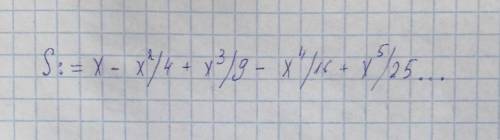 S:= x - x²/4 + x³/9 - x⁴/16 + x⁵/25...